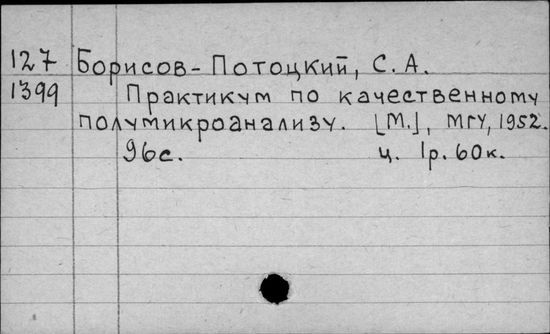 127 Борисов-Потоцкий, С. А.
1399 Практикум по качественному
полумикроанализу. [М.], МГУ, 1952.
96с. ц. 1р. 60к.